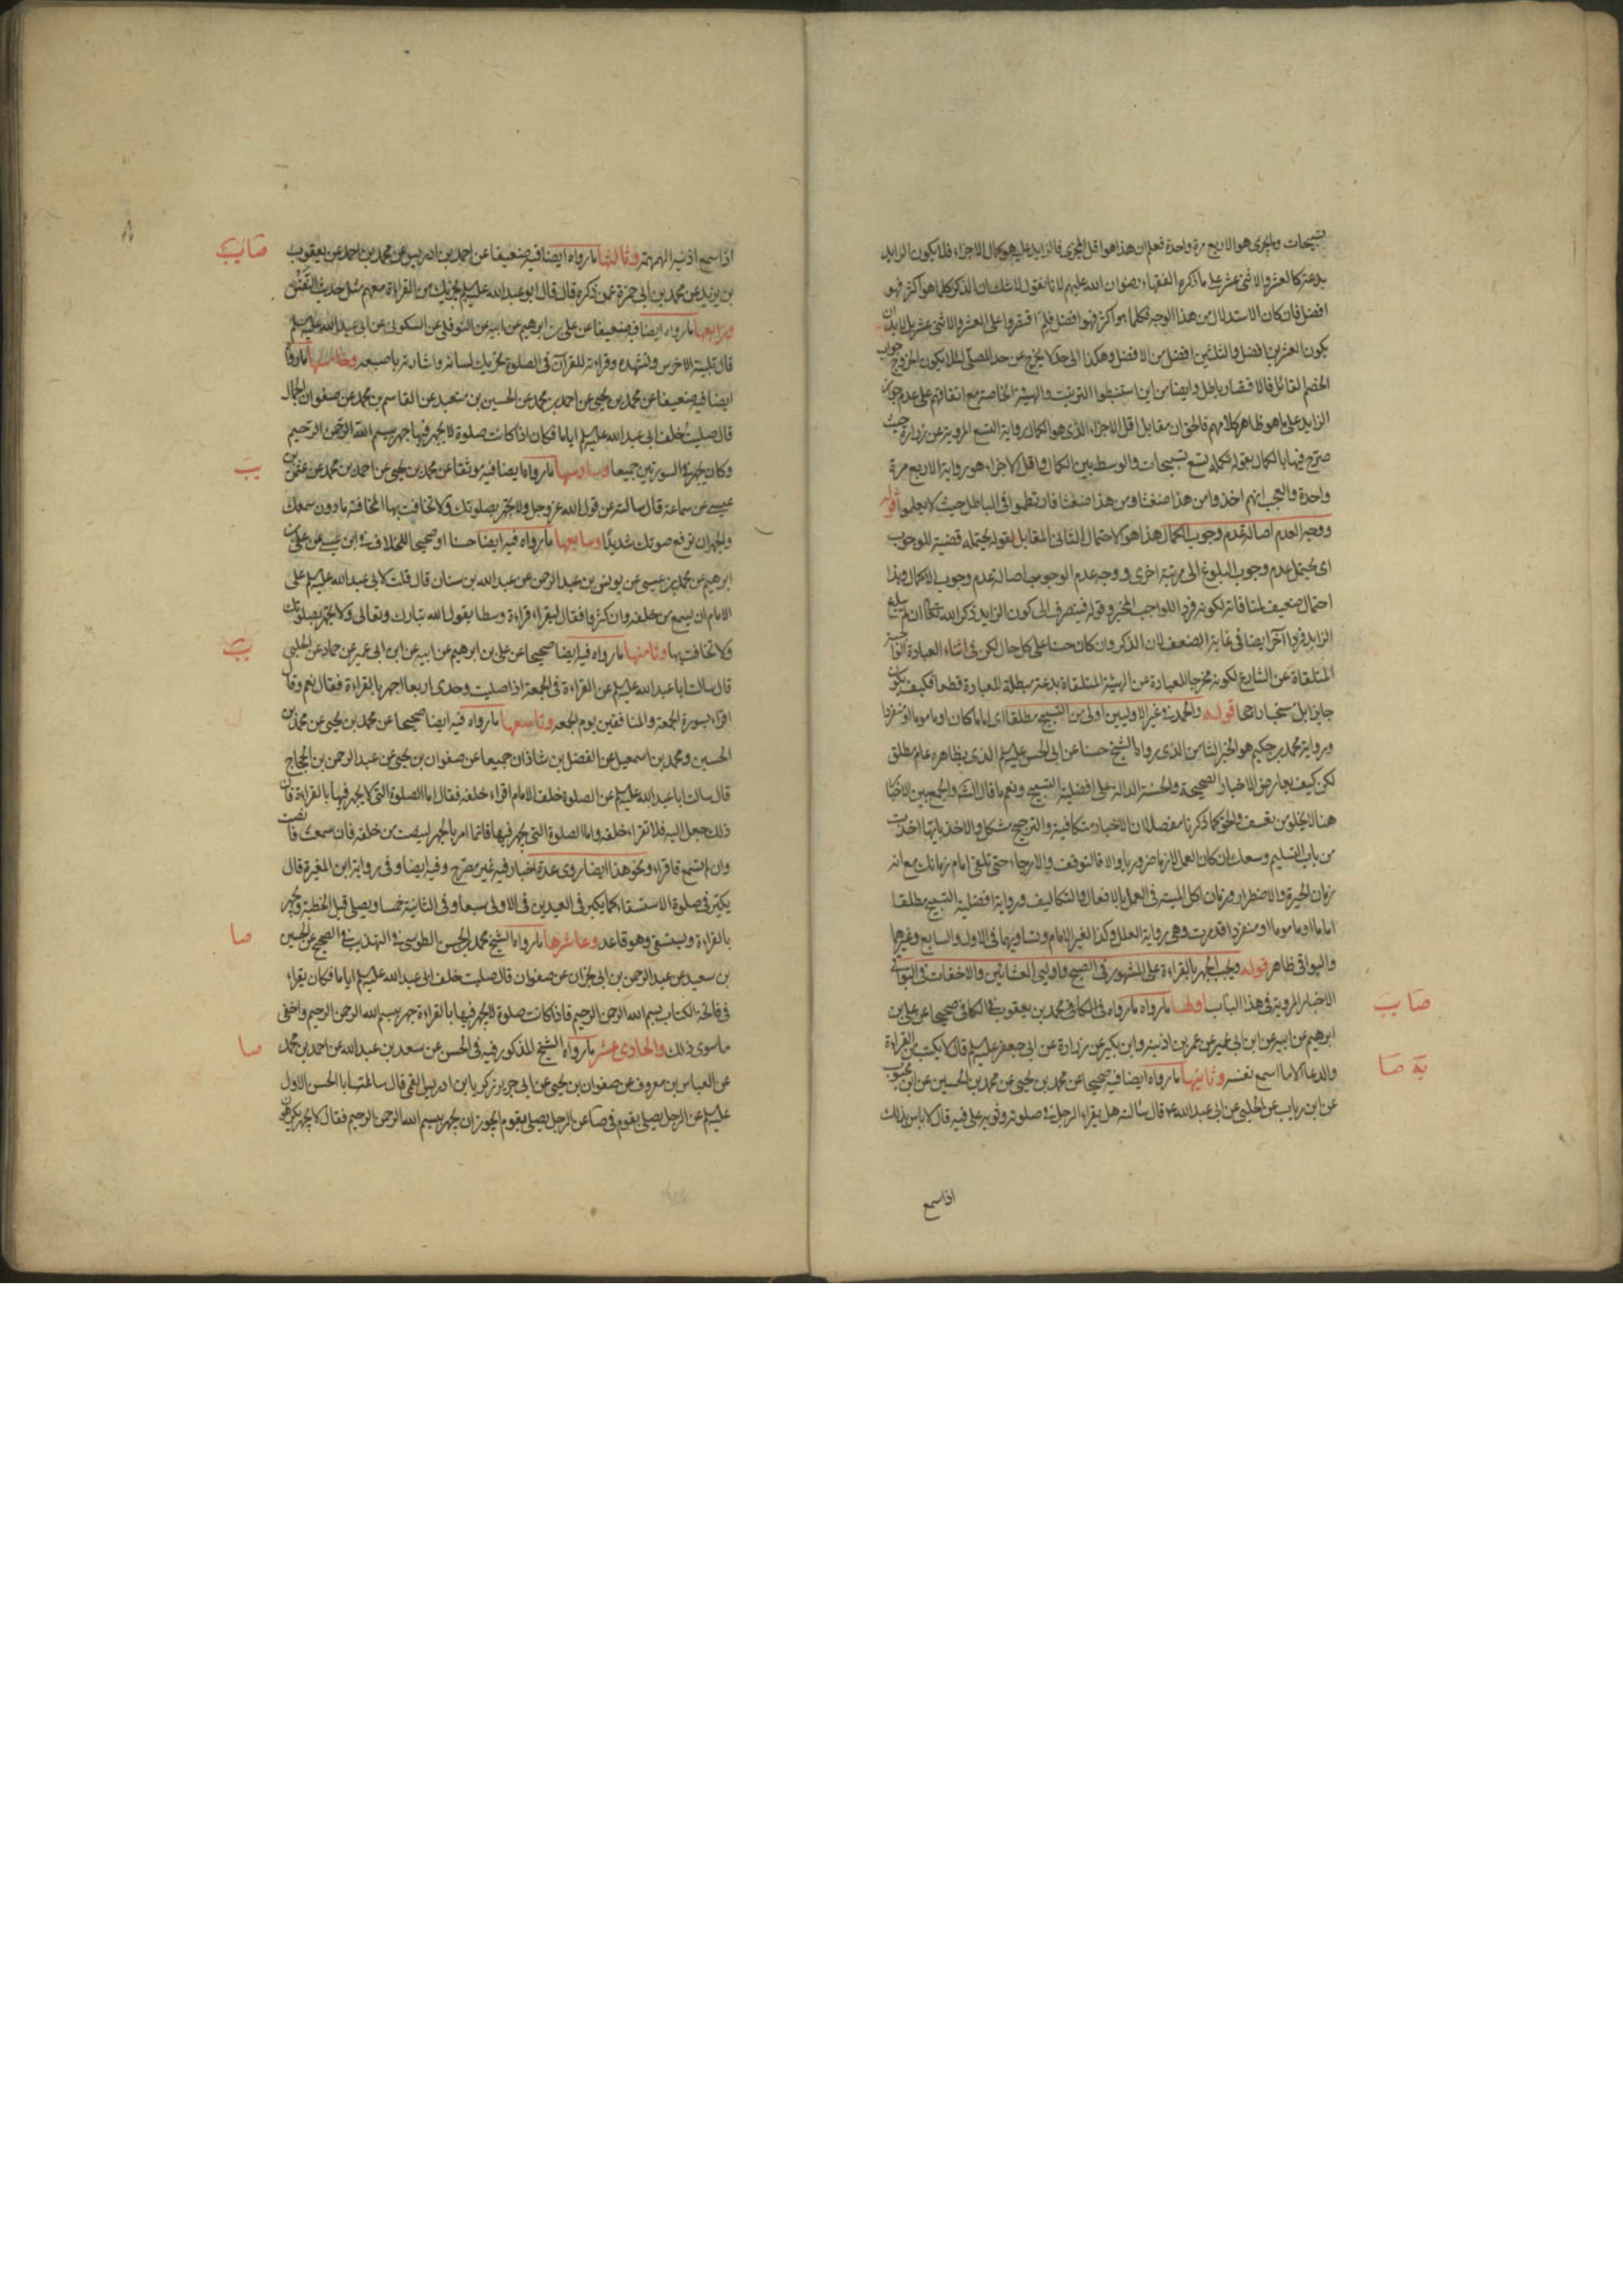 تسبيحات والمجزى هو الاربع مرة واحدة فعلم ان هذا هو اقل المجزى فالزايد عليه هو كمال الاجزاء فلا يكون الزايد
بدعة كالعشر والاثنى عشر على ما ذكره الفقهاء رضوان الله عليهم لانا نقول لا شك ان الذكر كلما هو اكثر فهو
افضل فان كان الاستدلال من هذا الوجه فكلما هو اكثر فهو افضل فلم اقتصروا على العشر والاثنى عشر بل لابد ان
يكون العشرين افضل والثلثين افضل من الافضل وهكذا الى حد لا يخرج عن حد المصلى لئلا يكون الخروج جواب
الخصم القائل فالاقتصار باطل وايضا من اين استنبطوا الترتيب والهيئة الخاصة مع اتفاقهم على عدم جواز
الزايد على ما هو ظاهر كلامهم فالحق ان مقابل اقل الاجزاء الذى هو الكمال رواية التسع المروية عن زرارة حيث
صرح فيها بالكمال بقوله تكمله تسع تسبيحات والوسط بين الكمال واقل الاجزاء هو رواية الاربع مرة
واحدة والعجب انهم اخذوا من هذا ضغثا ومن هذا ضغثا فان تظموا فى الباطل حيث لا يعلموا قوله
ووجه العدم اصالة عدم وجوب الكمال هذا هو الاحتمال الثانى المقابل لقوله يحتمله قضية للوجوب
اى يحتمل عدم وجوب البلوغ الى مرتبة اخرى ووجه عدم الوجوب اصالة عدم وجوب الاكمال وهذا
احتمال ضعيف لمنافاته لكونه فردا للواجب المخير وقوله فينصرف الى كون الزايد ذكر الله تعالى ان لم يبلغ
الزايد فردا آخر ايضا فى غاية الضعف لان الذكر وان كان حسنا على كل حال لكن فى اثناء العبادة
المتلقاة عن الشارع لكونه مخرجا للعبادة عن الهيئة المتلقاة بدعة مبطلة للعبادة قطعا فكيف يكون
جايزا بل مستحبا راجحا قوله والحمد فى غير الاوليين اولى من التسبيح مطلقا اى اماما كان او ماموما او منفردا
ورواية محمد بن حكيم هو الخبر الثامن الذى رواه الشيخ حسنا عن ابى الحسن عليه السلم الذى بظاهره عام مطلق
لكن كيف يعارض الاخبار الصحيحة والحسنة الدالة على افضلية التسبيح ونعم ما قال الشـ والجمع بين الاخبار
هنا لا يخلو من تعسف والحق كما ذكرنا مفصلا ان الاخبار متكافية والترجيح مشكل والاخذ بايتها اخذت
من باب التسليم وسعك ان كان العمل لازما ضروريا والا فالتوقف والارجاء حتى تلقى امام زمانك مع انه
زمان الحيرة والاضطرار وزمان اكل الميتة فى العمل بالافعال والتكاليف ورواية افضلية التسبيح مطلقا
اماما او ماموما او منفردا قد مرت وهى رواية العلل وكذا لغير الامام وتساويهما فى الاول والسابع وغيرهما
والبواقى ظاهر قوله ويجب الجهر بالقراءة على المشهور فى الصبح واوليى العشائين والاخفات فى البواقى
الاخبار المروية فى هذا الباب اولها ما رواه ما رواه فى الكافى محمد بن يعقوب فى الكافى صحيحا عن على بن
ابرهيم عن ابيه عن ابن ابى عمير عن عمر بن اذينه وابن بكير عن زرارة عن ابى جعفر عليه السلم قال لا يكتب من القراءة
والدعا الا ما اسمع نفسه وثانيها ما رواه ايضا فيه صحيحا عن محمد بن يحيى عن محمد بن الحسين عن ابن محبوب
عن ابن رياب عن الحلبى عن ابى عبد الله ع قال سالته هل يقراء الرجل فى صلوته وثوبه على فيه قال لا باس بذلك
اذا سمع
صا ب
ية صا
اذا سمع اذنيه الهمهمة وثالثها ما رواه ايضا فيه ضعيفا عن احمد بن ادريس عن محمد بن احمد عن يعقوب
بن يزيد عن محمد بن ابى حمزة عمن ذكره قال قال ابو عبد الله عليه السلم يجزيك من القراءة معهم مثل حديث النفس
ورابعها ما رواه ايضا فيه ضعيفا عن على بن ابرهيم عن ابيه عن النوفلى عن السكونى عن ابى عبد الله عليه السلم
قال تلبية الاخرس وتشهده وقراءته للقرآن فى الصلوة تحريك لسانه واشارته باصبعه وخامسها ما رواه
ايضا فيه ضعيفا عن محمد بن يحيى عن احمد بن محمد عن الحسين بن سعيد عن القاسم بن محمد عن صفوان الجمال
قال صليت خلف ابى عبد الله عليه السلم اياما فكان اذا كانت صلوة لا يجهر فيها جهر ببسم الله الرحمن الرحيم
وكان يجهر فى السورتين جميعا وسادسها ما رواه ايضا فيه موثقا عن محمد بن يحيى عن احمد بن محمد عن عثمن بن
عيسى عن سماعة قال سالته عن قول الله عز وجل ولا تجهر بصلوتك ولا تخافت بها المخافتة ما دون سمعك
والجهر ان ترفع صوتك شديدا وسابعها ما رواه فيه ايضا حسنا او صحيحا للخلاف فى ابن عيسى عن على بن
ابرهيم عن محمد بن عيسى عن يونس بن عبد الرحمن عن عبد الله بن سنان قال قلت لابى عبد الله عليه السلم على
الامام ان يسمع من خلفه وان كثروا فقال ليقراء قراءة وسطا يقول الله تبارك وتعالى ولا تجهر بصلوتك
ولا تخافت بها وثامنها ما رواه فيه ايضا صحيحا عن على بن ابرهيم عن ابيه عن ابن ابى عمير عن حماد عن الحلبى
قال سالت ابا عبد الله عليه السلم عن القراءة فى الجمعة اذا صليت وحدى اربعا اجهر بالقراءة فقال نعم وقال
اقراء بسورة الجمعة والمنافقين يوم الجمعه وتاسعها ما رواه فيه ايضا صحيحا عن محمد بن يحيى عن محمد بن
الحسين ومحمد بن اسمعيل عن الفضل بن شاذان جميعا عن صفوان بن يحيى عن عبد الرحمن بن الحجاج
قال سالت ابا عبد الله عليه السلم عن الصلوة خلف الامام اقراء خلفه فقال اما الصلوة التى لا يجهر فيها بالقراءة فان
ذلك جعل اليه فلا تقراء خلفه واما الصلوة التى يجهر فيها فانما امر بالجهر لينصت من خلفه فان سمعت فانصت
وان لم تسمع فاقراء ونحو هذا ايضا روى عدة اخبار فيه غير مصرح وفيه ايضا وفى رواية ابن المغيرة قال
يكبر فى صلوة الاستسقاء كما يكبر فى العيدين فى الاولى سبعا وفى الثانية خمسا ويصلى قبل الخطبة ويجهر
بالقراءة ويستسقى وهو قاعد وعاشرها ما رواه الشيخ محمد بن الحسن الطوسى فى التهذيب فى الصحيح عن الحسين
بن سعيد عن عبد الرحمن بن ابى نجران عن صفوان قال صليت خلف ابى عبد الله عليه السلم اياما فكان يقراء
فى فاتحة الكتاب بسم الله الرحمن الرحيم فاذا كانت صلوة لا يجهر فيها بالقراءة جهر ببسم الله الرحمن الرحيم واخفى
ما سوى ذلك والحادى عشر ما رواه الشيخ المذكور فيه فى الحسن عن سعد بن عبد الله عن احمد بن محمد
عن العباس بن معروف عن صفوان بن يحيى عن ابى جرير زكريا بن ادريس القمى قال سالت ابا الحسن الاول
عليه السلم عن الرجل يصلى بقوم فى صا عن الرجل يصلى بقوم يجوز ان يجهر ببسم الله الرحمن الرحيم فقال لا يجهر
صا ب
ب
ب
صا
صا